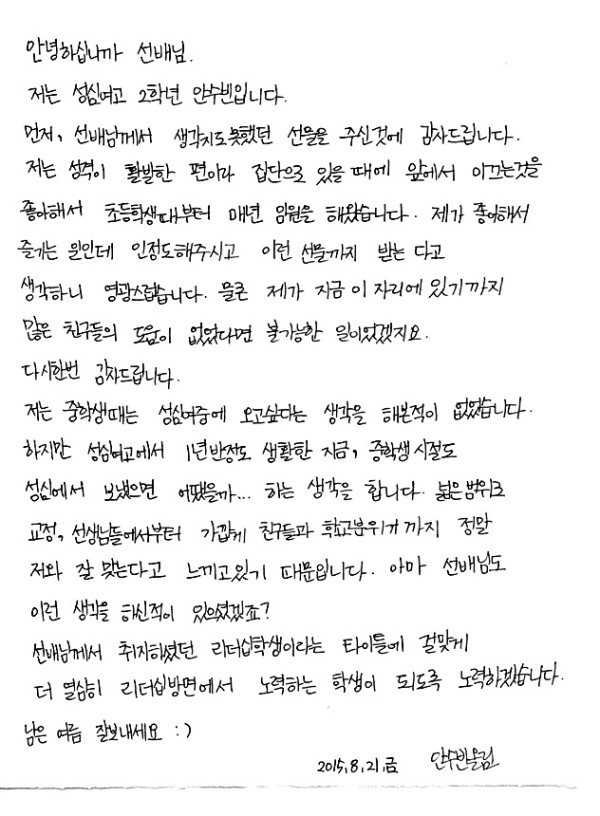 안녕하십니까 선배님.
저는 성심여고 2학년 안수빈입니다.
먼저, 선배님께서 생각지도못했던 선물을 주신것에 감사드립니다.
저는 성격이 활발한 편이라 집단으로 있을 때에 앞에서 이끄는것을
좋아해서 초등학생때부터 매년 임원을 해왔습니다. 제가 좋아해서
즐기는 일인데 인정도해주시고 이런 선물까지 받는 다고
생각하니 영광스럽습니다. 물론 제가 지금 이 자리에 있기까지
많은 친구들의 도움이 없었다면 불가능한 일이었겠지요.
다시한번 감사드립니다.
저는 중학생때는 성심여중에 오고싶다는 생각을 해본적이 없었습니다.
하지만 성심여고에서 1년반정도 생활한 지금, 중학생시절도
성심에서 보냈으면 어땠을까... 하는 생각을 합니다. 넓은범위로
교정, 선생님들에서부터 가깝게 친구들과 학교분위기 까지 정말
저와 잘 맞는다고 느끼고있기 때문입니다. 아마 선배님도
이런 생각을 하신적이 있으셨겠죠?
선배님께서 취지하셨던 리더십학생이라는 타이틀에 걸맞게
더 열심히 리더십방면에서 노력하는 학생이 되도록 노력하겠습니다.
남은 여름 잘보내세요 :)
2015.8.21.금 안수빈올림